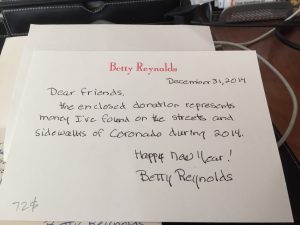 Betty Reynolds
December 31, 2014
Dear friends,
the enclosed donation represents
money I've found on the streets and
sidewalks of Coronado during 2014.
Happy New Year!
Betty Reynolds
72¢
Betty Reynolds